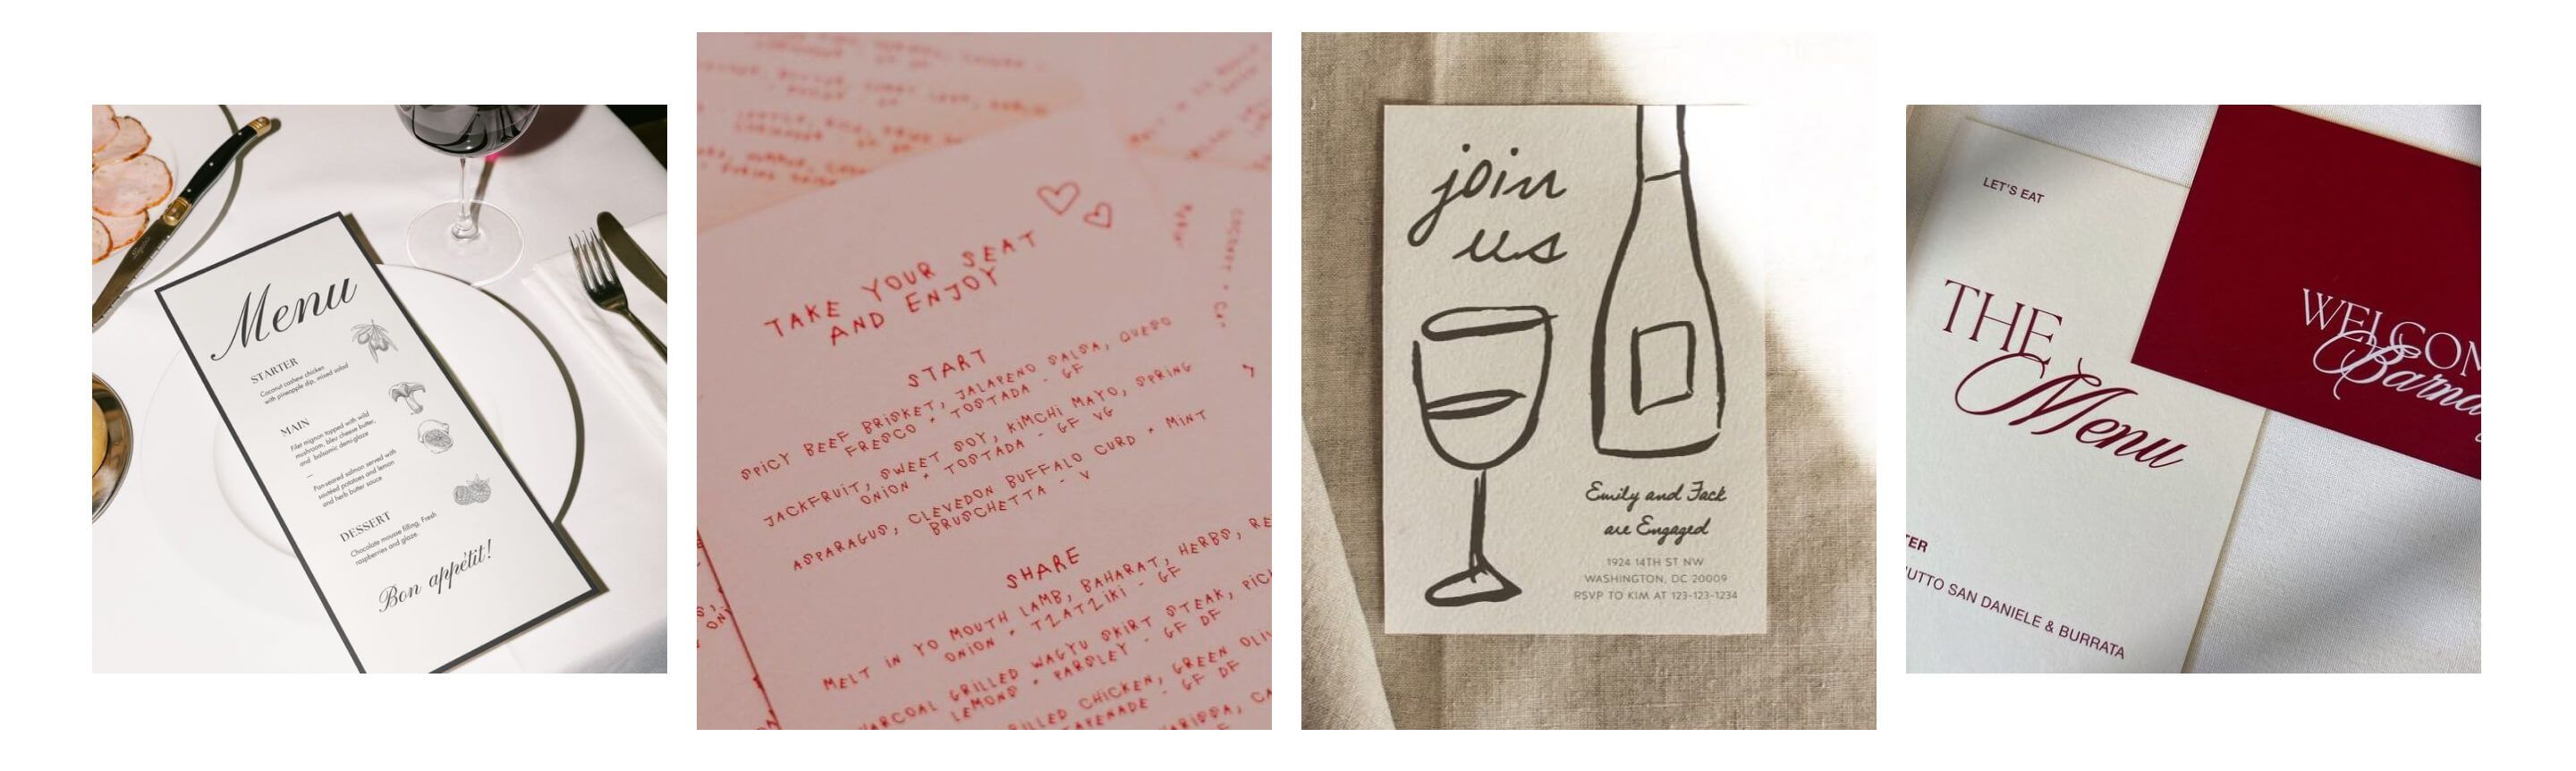 Menu
STARTER
Coconut cashew chicken
with pineapple dip, mixed salad
MAIN
Filet mignon topped with wild
mushroom, bleu cheese butter,
and balsamic demi-glaze
—
Pan-seared salmon served with
sautéed potatoes and lemon
and herb butter sauce
DESSERT
Chocolate mousse filling, Fresh
raspberries and glaze.
Bon appétit!
TAKE YOUR SEAT
AND ENJOY
START
SPICY BEEF BRISKET, JALAPENO SALSA, QUESO
FRESCO + TOSTADA - GF
JACKFRUIT, SWEET SOY, KIMCHI MAYO, SPRING
ONION + TOSTADA - GF VG
ASPARAGUS, CLEVEDON BUFFALO CURD + MINT
BRUSCHETTA - V
SHARE
MELT IN YO MOUTH LAMB, BAHARAT, HERBS, RE
ONION + TZATZIKI - GF
HARCOAL GRILLED WAGYU SKIRT STEAK, PIC
LEMONS + PARSLEY - GF DF
RILLED CHICKEN, GREEN OLI
APENADE - GF DF
HARISSA, CA
join
us
Emily and Jack
are Engaged
1924 14TH ST NW
WASHINGTON, DC 20009
RSVP TO KIM AT 123-123-1234
LET'S EAT
THE
Menu
TER
UTTO SAN DANIELE & BURRATA
WELCOM
Barna